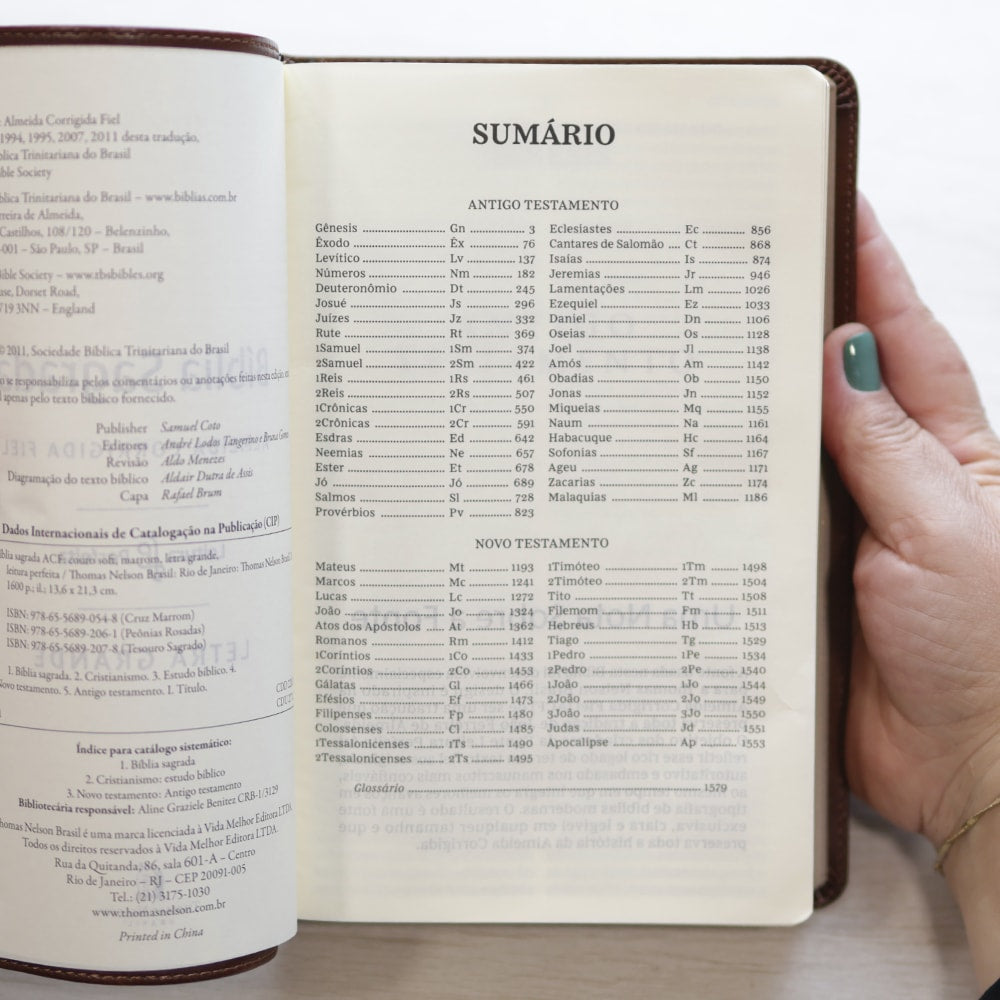 Almeida Corrigida Fiel
1994, 1995, 2007, 2011 desta tradução,
Trinitariana do Brasil
Society
Trinitariana do Brasil – www.biblias.com.br
de Almeida,
Castilhos, 108/120 – Belenzinho,
-001 – São Paulo, SP – Brasil
Society – www.tbsbibles.org
Dorset Road,
3NN – England
©2011, Sociedade Bíblica Trinitariana do Brasil
se responsabiliza pelos comentários ou anotações feitas nesta
apenas pelo texto bíblico fornecido.
Publisher Samuel Coto
Editores André Lodos Tangerino e
Revisão Aldo Menezes
Diagramação do texto bíblico Aldair Dutra de Assis
Capa Rafael Brum
Dados Internacionais de Catalogação na Publicação (CIP)
sagrada ACF: couro soft, marrom, letra grande,
leitura perfeita / Thomas Nelson Brasil: Rio de Janeiro: Thomas Nelson
1600 p.; il.; 13,6 x 21,3 cm.
ISBN: 978-65-5689-054-8 (Cruz Marrom)
ISBN: 978-65-5689-206-1 (Peônias Rosadas)
ISBN: 978-65-5689-207-8 (Tesouro Sagrado)
1. Bíblia sagrada. 2. Cristianismo. 3. Estudo bíblico. 4.
Novo testamento. 5. Antigo testamento. I. Título.
CDD
CDU
Índice para catálogo sistemático:
1. Bíblia sagrada
2. Cristianismo: estudo bíblico
3. Novo testamento: Antigo testamento
Bibliotecária responsável: Aline Graziele Benitez CRB-1/3129
Thomas Nelson Brasil é uma marca licenciada à Vida Melhor Editora LTDA.
Todos os direitos reservados à Vida Melhor Editora LTDA.
Rua da Quitanda, 86, sala 601-A – Centro
Rio de Janeiro – RJ – CEP 20091-005
Tel.: (21) 3175-1030
www.thomasnelson.com.br
Printed in China
SUMÁRIO
ANTIGO TESTAMENTO
Gênesis Gn 3
Êxodo Êx 76
Levítico Lv 137
Números Nm 182
Deuteronômio Dt 245
Josué Js 296
Juízes Jz 332
Rute Rt 369
1Samuel 1Sm 374
2Samuel 2Sm 422
1Reis 1Rs 461
2Reis 2Rs 507
1Crônicas 1Cr 550
2Crônicas 2Cr 591
Esdras Ed 642
Neemias Ne 657
Ester Et 678
Jó Jó 689
Salmos Sl 728
Provérbios Pv 823
Eclesiastes Ec 856
Cantares de Salomão Ct 868
Isaías Is 874
Jeremias Jr 946
Lamentações Lm 1026
Ezequiel Ez 1033
Daniel Dn 1106
Oseias Os 1128
Joel Jl 1138
Amós Am 1142
Obadias Ob 1150
Jonas Jn 1152
Miqueias Mq 1155
Naum Na 1161
Habacuque Hc 1164
Sofonias Sf 1167
Ageu Ag 1171
Zacarias Zc 1174
Malaquias Ml 1186
NOVO TESTAMENTO
Mateus Mt 1193
Marcos Mc 1241
Lucas Lc 1272
João Jo 1324
Atos dos Apóstolos At 1362
Romanos Rm 1412
1Coríntios 1Co 1433
2Coríntios 2Co 1453
Gálatas Gl 1466
Efésios Ef 1473
Filipenses Fp 1480
Colossenses Cl 1485
1Tessalonicenses 1Ts 1490
2Tessalonicenses 2Ts 1495
1Timóteo 1Tm 1498
2Timóteo 2Tm 1504
Tito Tt 1508
Filemom Fm 1511
Hebreus Hb 1513
Tiago Tg 1529
1Pedro 1Pe 1534
2Pedro 2Pe 1540
1João 1Jo 1544
2João 2Jo 1549
3João 3Jo 1550
Judas Jd 1551
Apocalipse Ap 1553
Glossário 1579